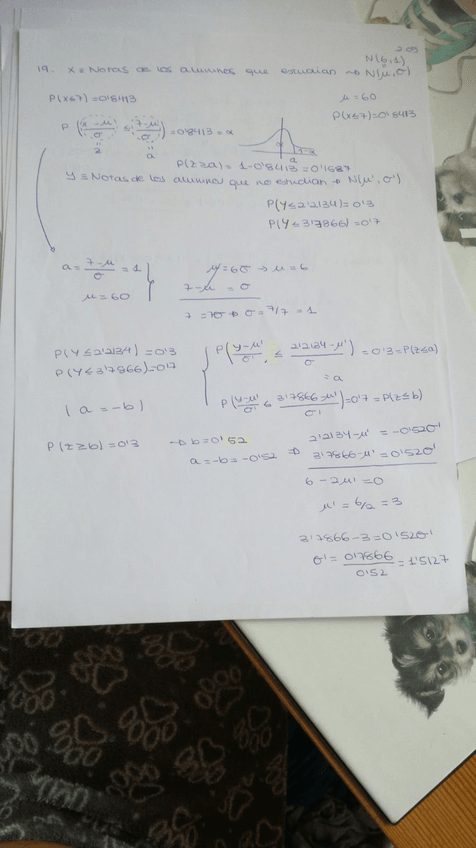 N(6,1)
19. X ≡ Notas de los alumnos que estudian → N(μ, σ)
P(X≤7)=0'8413
μ = 6σ
P(X≤7)=0'8413
P(x-μ/σ ≤ 7-μ/σ)=0'8413=a
z a
a
P(z≥a)= 1-0'8413=0'1587
Y ≡ Notas de los alumnos que no estudian → N(μ', σ')
P(Y≤2'2134)=0'3
P(Y≤3'7866)=0'7
a = 7-μ/σ = 1
μ = 6σ
μ = 6σ → μ = 6
7-μ = σ
7 = 7σ → σ = 7/7 = 1
P(Y≤2'2134)=0'3
P(Y≤3'7866)=0'7
P(y-μ'/σ' ≤ 2'2134-μ'/σ')=0'3=P(z≤a)
= a
P(y-μ'/σ' ≤ 3'7866-μ'/σ')=0'7=P(z≤b)
(a = -b)
P(z≥b)=0'3 → b=0'52
a=-b=-0'52 ⇒
2'2134-μ' = -0'52σ'
3'7866-μ' = 0'52σ'
6-2μ' = 0
μ' = 6/2 = 3
3'7866-3=0'52σ'
σ' = 0'7866/0'52 = 1'5127